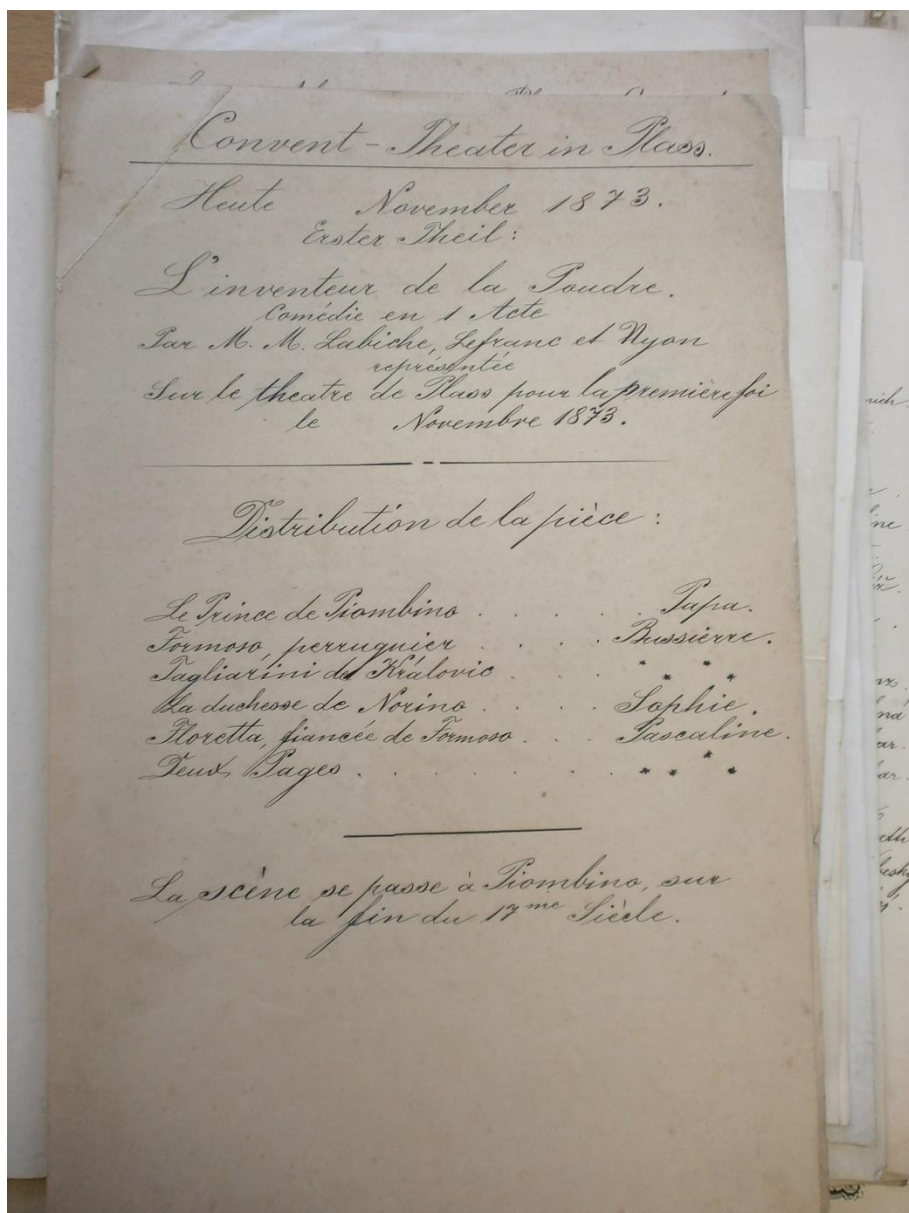 Convent - Theater in Plass.
Heute November 1873.
Erster Theil:
L'inventeur de la Poudre.
Comédie en 1 Acte
Par M. M. Labiche, Lefranc et Nyon
représentée
Sur le theatre de Plass pour la première foi
le Novembre 1873.
Distribution de la pièce:
Le Prince de Piombino . . . . . Papa.
Formoso, perruquier . . . . Bussierre.
Tagliarini de Královic . . . * * *
La duchesse de Norino . . . . Sophie.
Floretta, fiancée de Formoso . . . Pascaline.
Deux Pages . . . . . . . * * * *
La scène se passe à Piombino, sur
la fin du 17me Siècle.